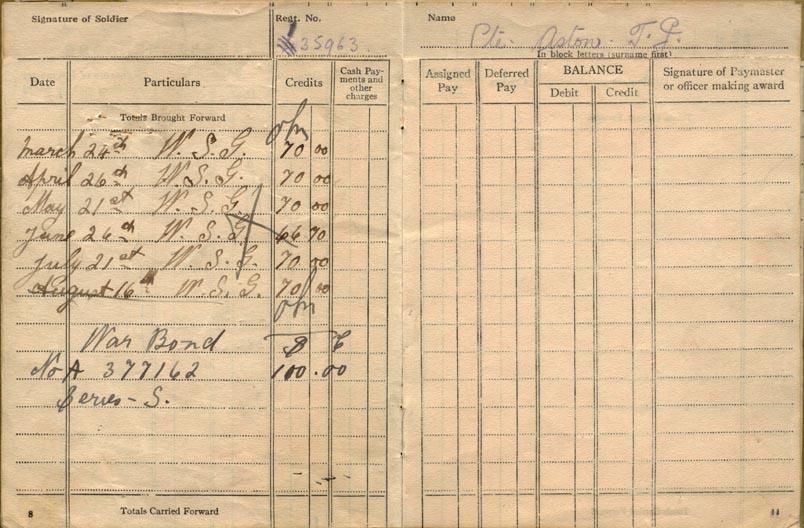 Signature of Soldier
Regt. No.
35963
Date Particulars Credits Cash Pay-ments and other charges
Totals Brought Forward
March 24th W. S. G. 70 00
April 26th W. S. G. 70 00
May 21st W. S. G. 70 00
June 26th W. S. G. 66 70
July 21st W. S. G. 70 00
August 16th W. S. G. 70 00
War Bond $ C
No A 377162 100.00
Series - S.
8 Totals Carried Forward
Name
Pte. Aston. T. G.
In block letters (surname first)
Assigned Pay Deferred Pay BALANCE Debit Credit Signature of Paymaster or officer making award